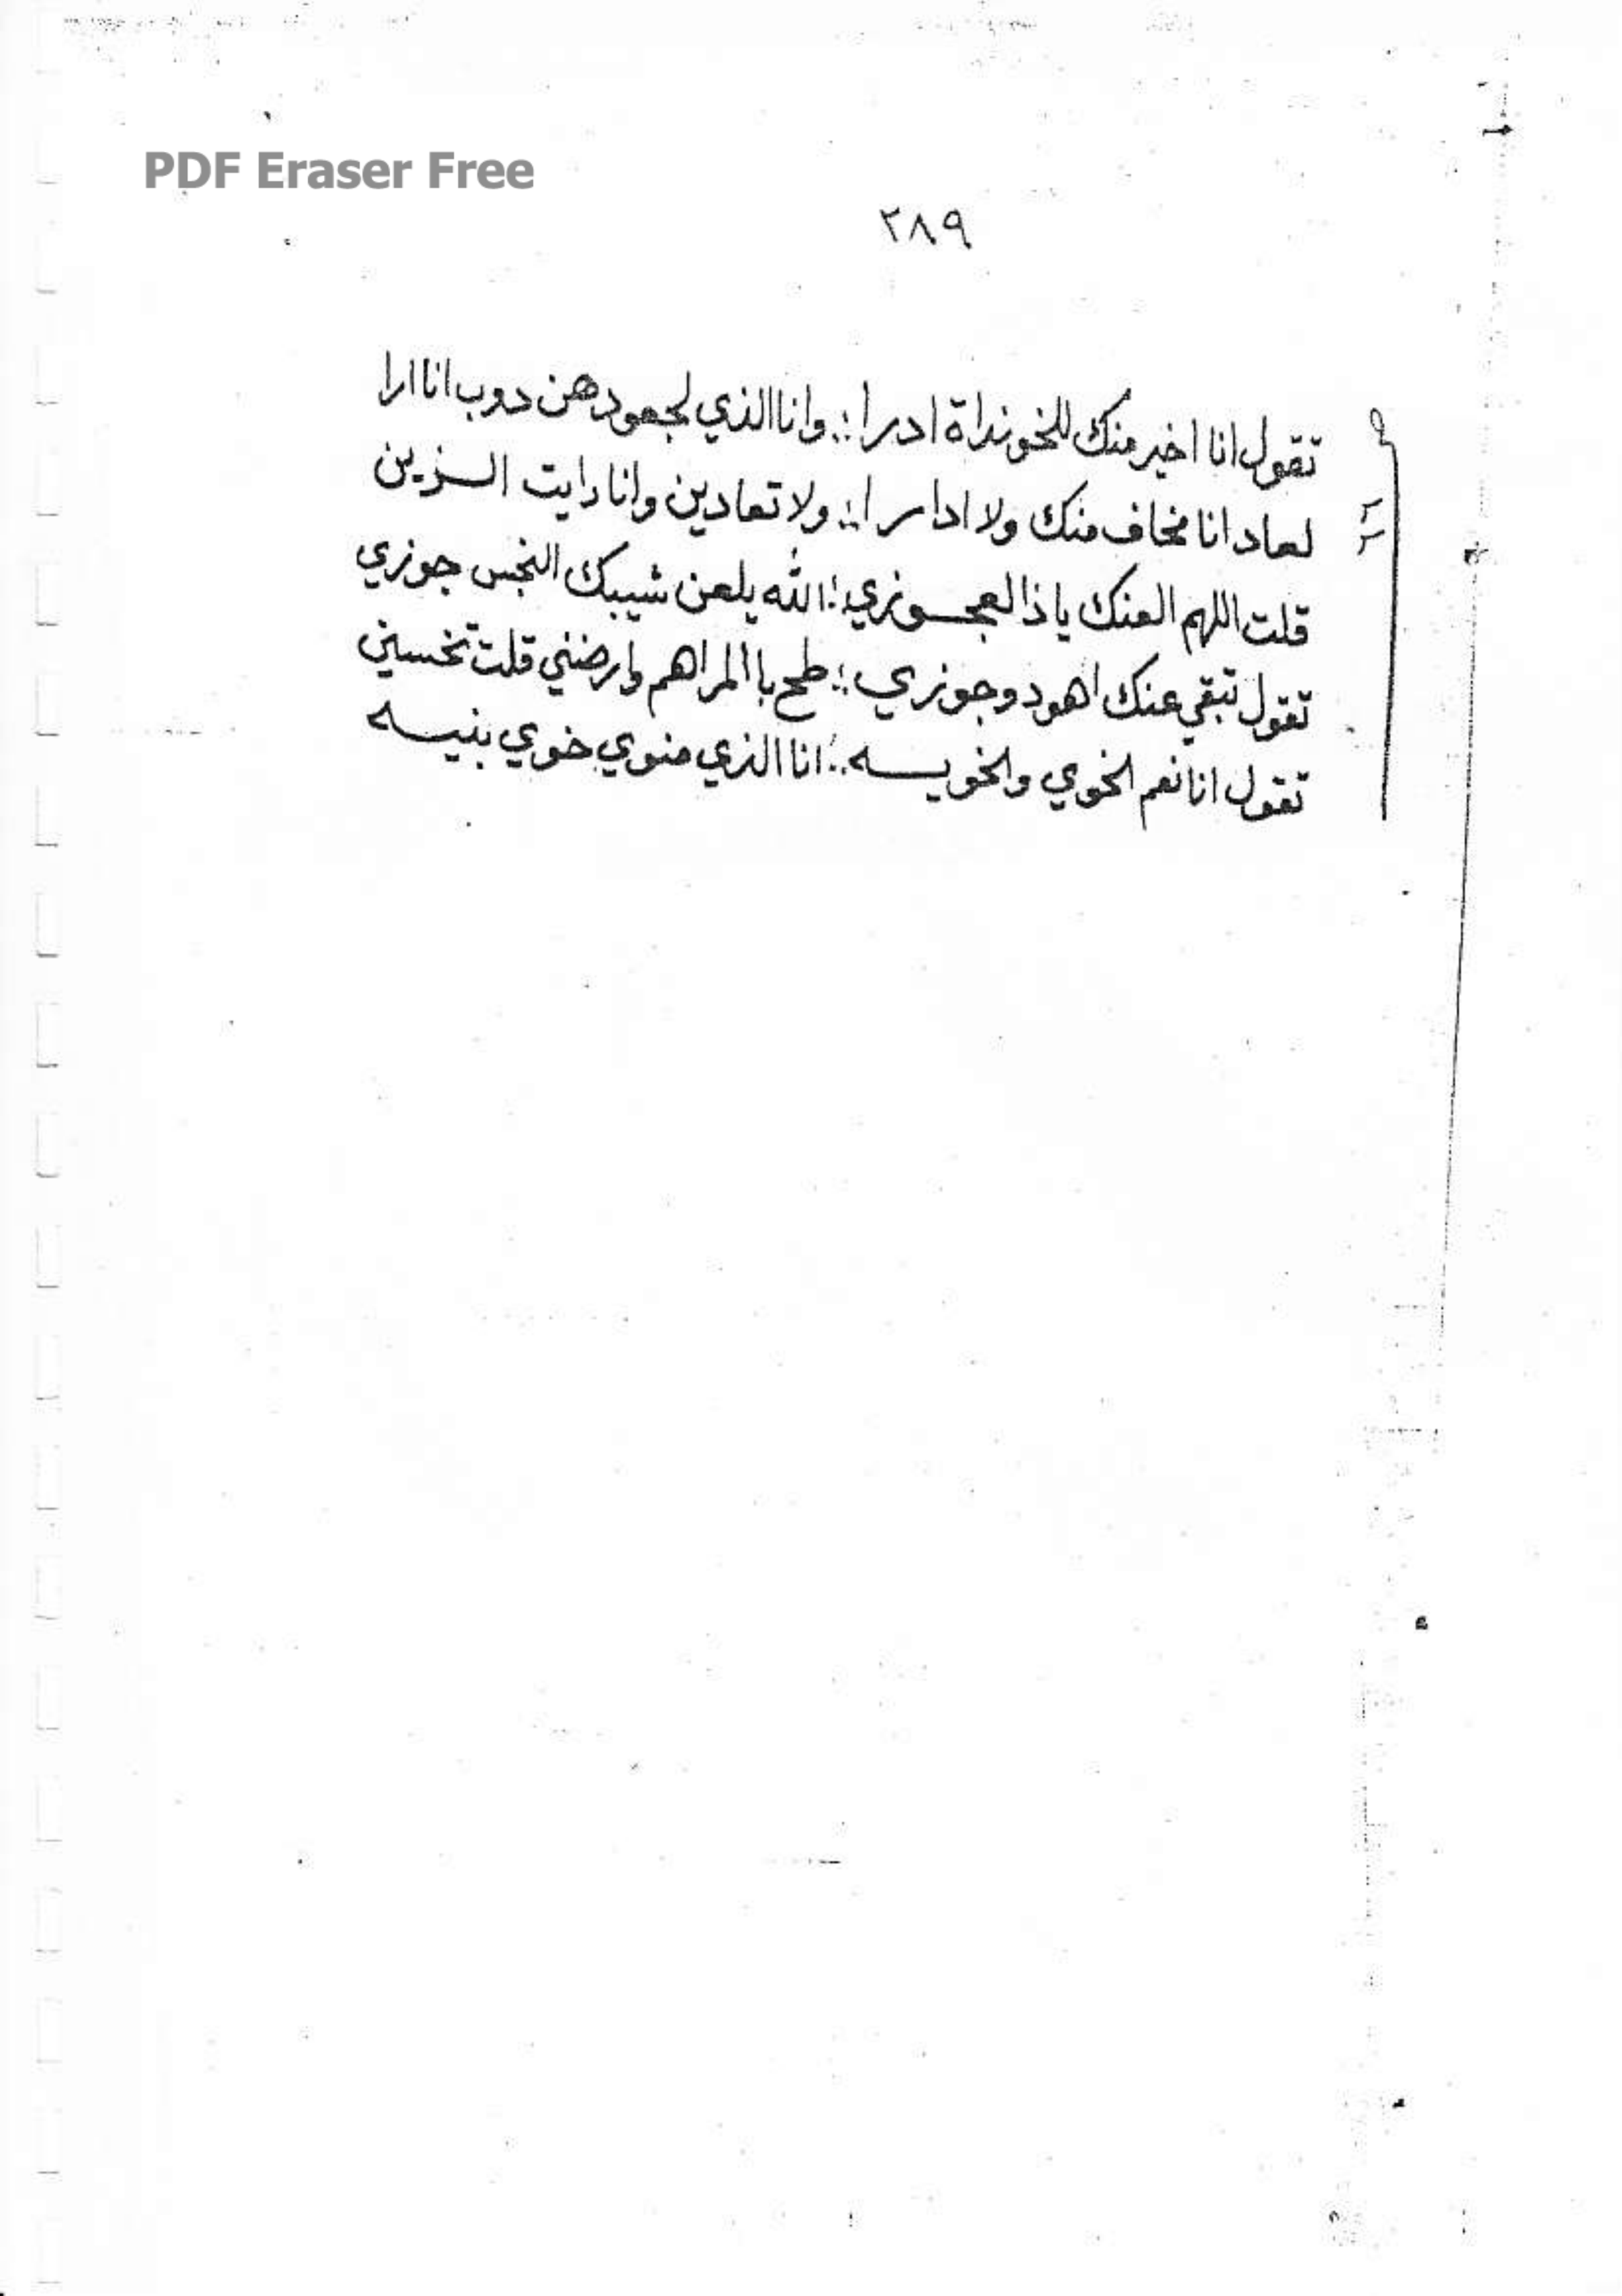 PDF Eraser Free
٢٨٩
تقول انا اخير منك للخونداة ادرا ؞ وانا الذي لجعودهن دوب انا ارا
لعاد انا مخاف منك ولا ادارا ؞ ولا تعادين وانا رايت الـزين
قلت اللهم العنك يا ذا العجـوزي ؞ الله يلعن شيبك النجس جوزي
تقول تبقى عنك اهود وجوزي ؞ طح با المراهم وارضني قلت تخسين
تقول انا نعم الخوي والخويـه ؞ انا الذي منوي خوي بنيـه